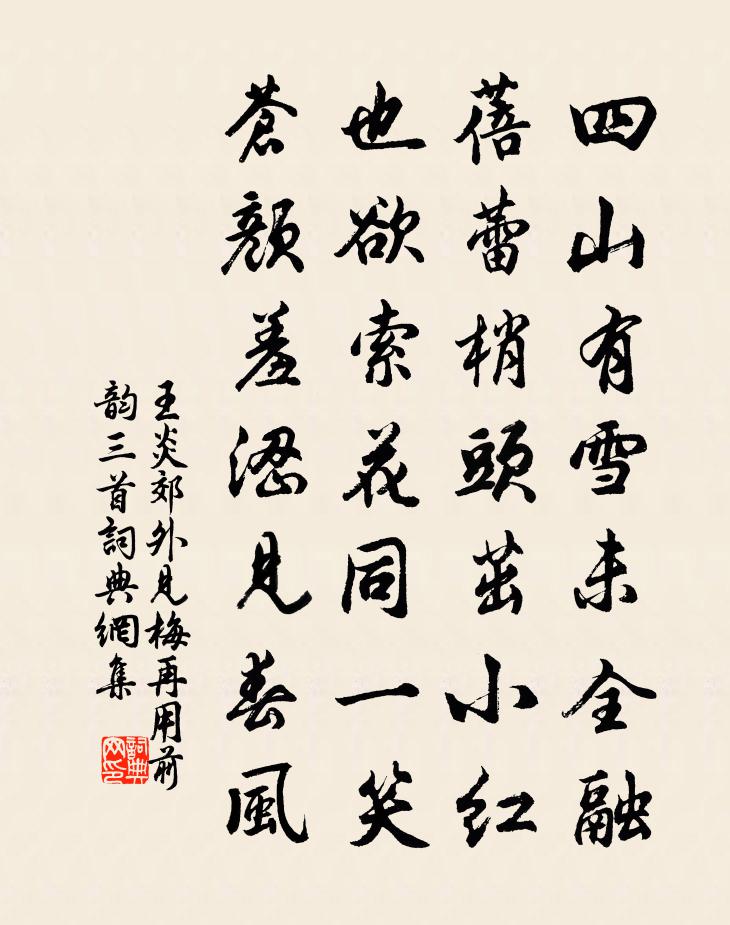 四山有雪未全融
蓓蕾梢頭茁小紅
也欲索花同一笑
蒼顏羞澀見春風
王炎郊外見梅再用前
韵三首詞典網集
詞典
网印